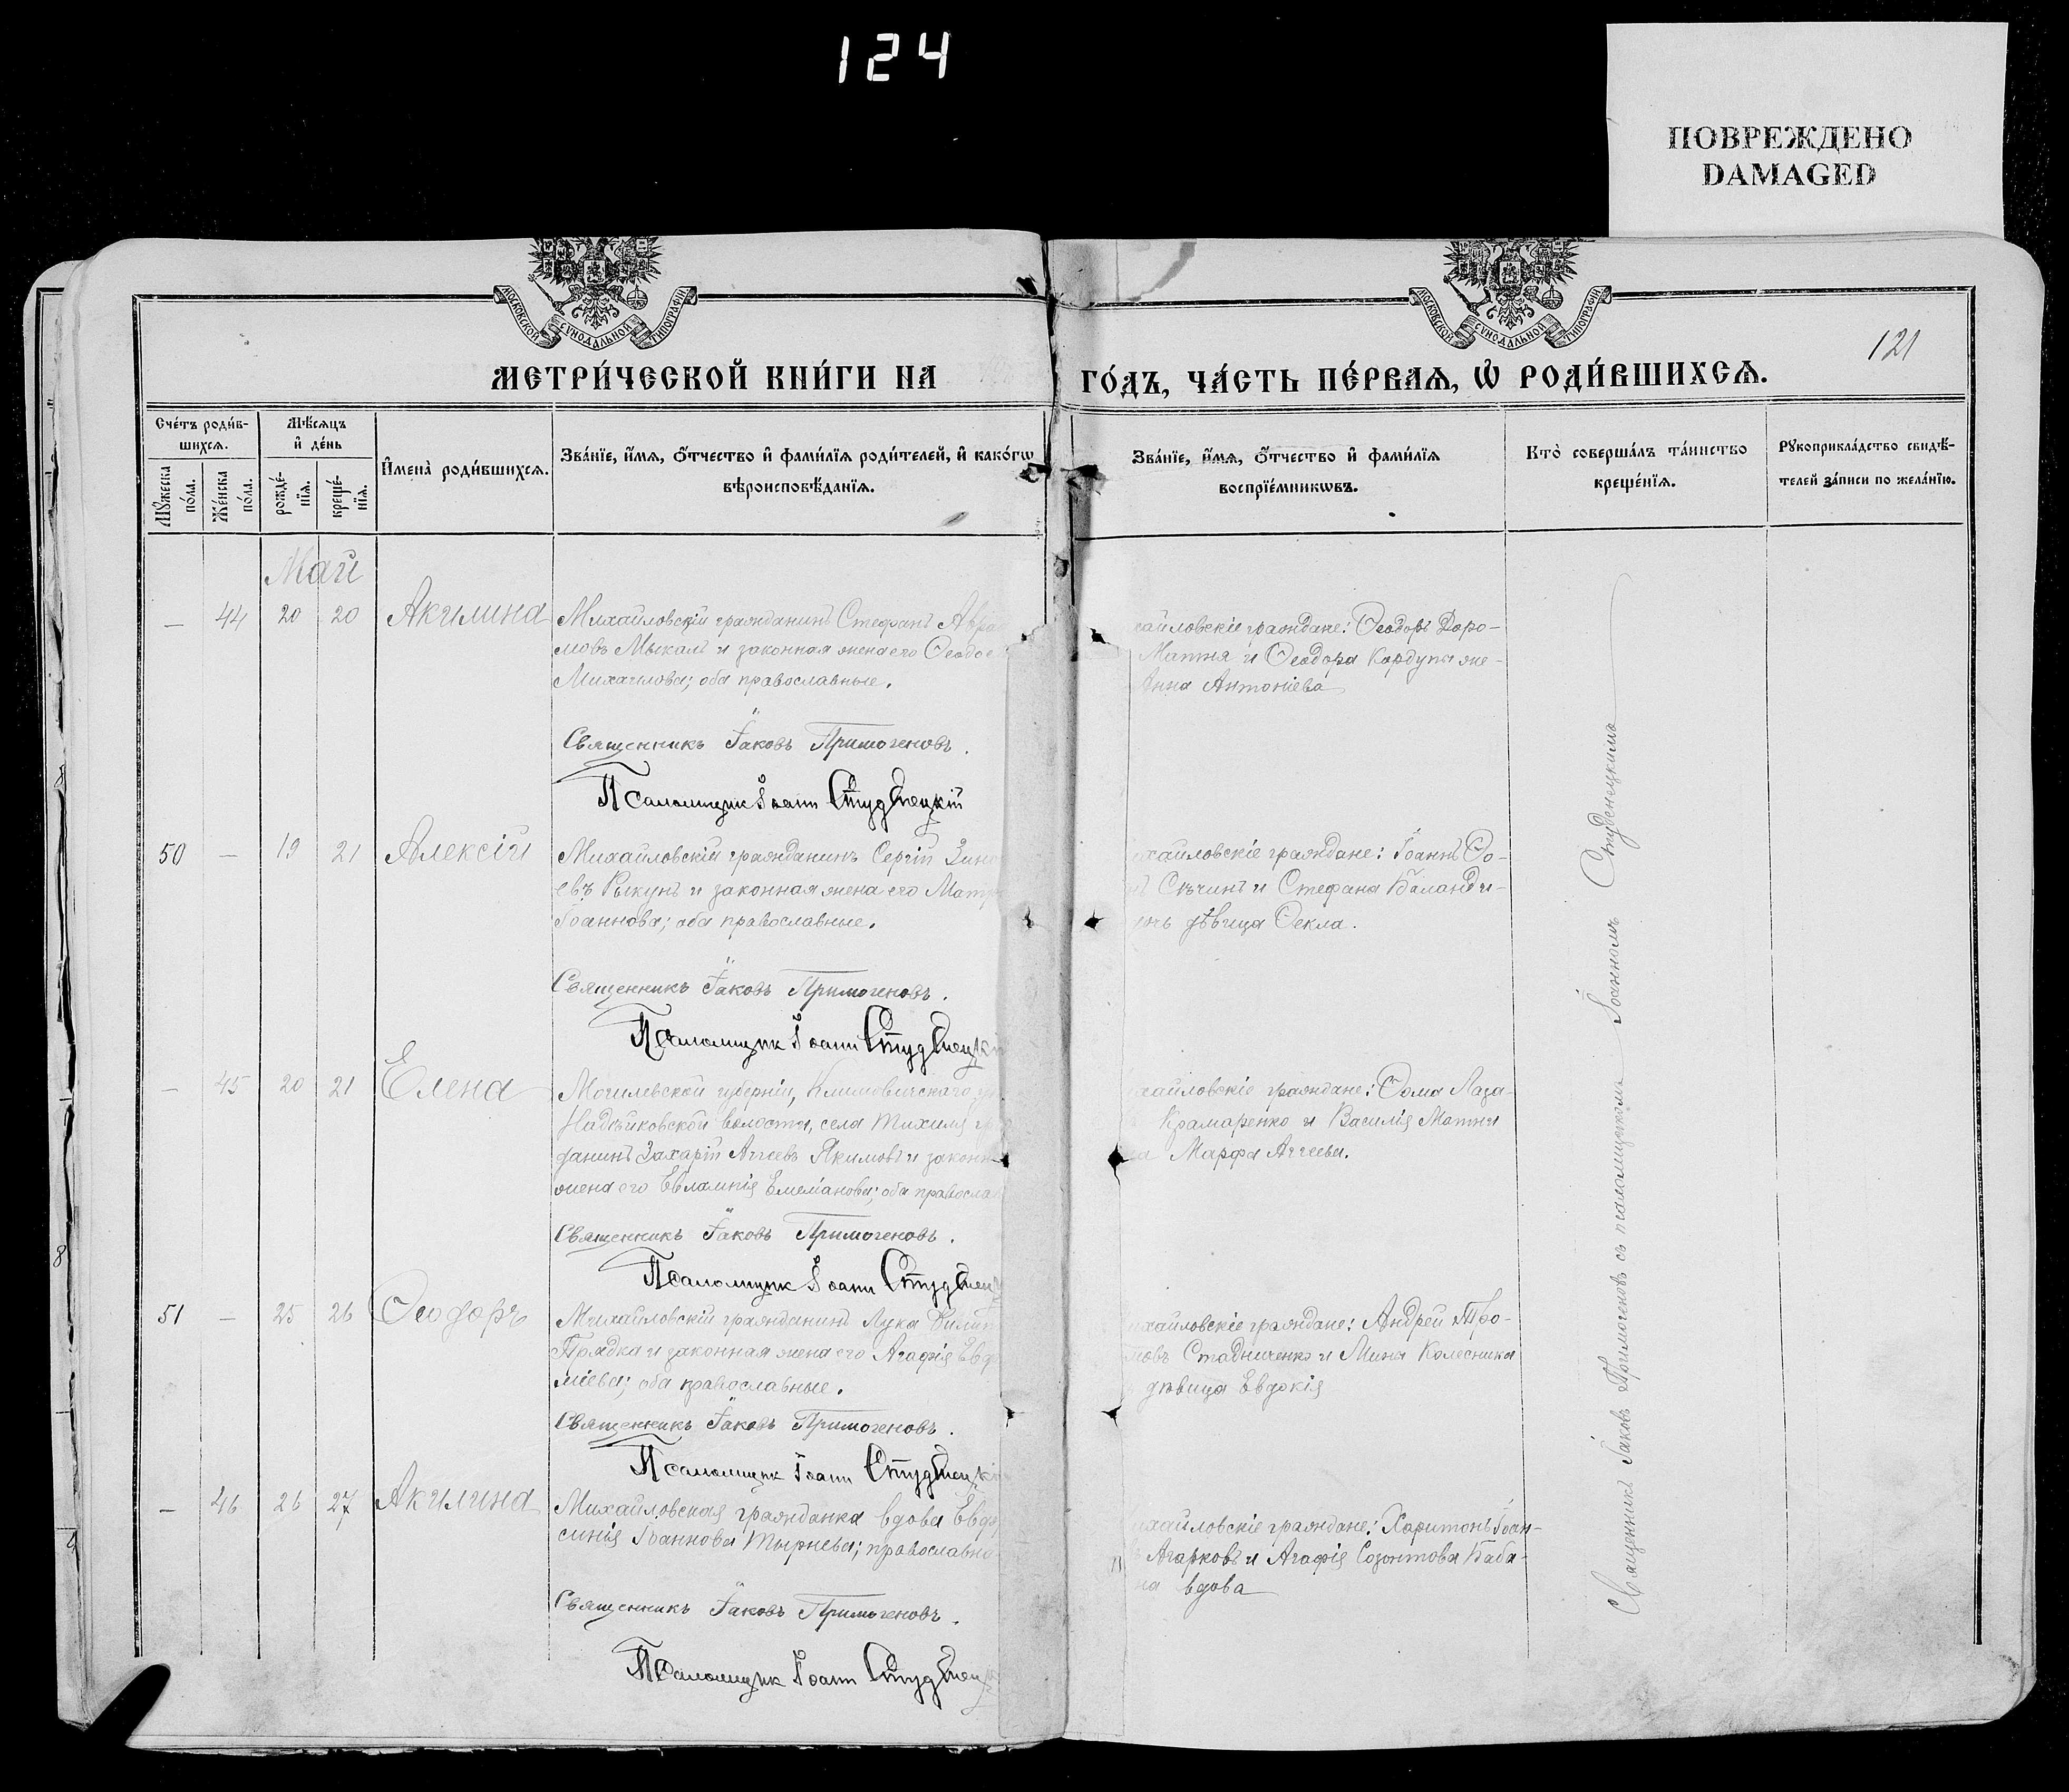 124
ПОВРЕЖДЕНО
DAMAGED
МОСКОВСКОЙ СУНОДАЛЬНОЙ ТИПОГРАФІИ
МОСКОВСКОЙ СУНОДАЛЬНОЙ ТИПОГРАФІИ
121
МЕТРИ́ЧЕСКОЙ КНИ́ГИ НА
ГО́ДЪ, ЧА́СТЬ ПЕ́РВАЯ, Ѡ РОДИ́ВШИХСѦ.
Сче́тъ роди́в-
шихсѧ.
Мꙋ́жеска по́ла.
Же́нска по́ла.
Мѣ́сѧцъ
и҆ де́нь
рожде́-
нїѧ.
креще́-
нїѧ.
И҆мена̀ роди́вшихсѧ.
Зва́нїе, и҆́мѧ, ѻ҆́тчество и҆ фами́лїѧ роди́телей, и҆ како́гѡ
вѣроисповѣ́данїѧ.
Зва́нїе, и҆́мѧ, ѻ҆́тчество и҆ фами́лїѧ
воспрїе́мникѡвъ.
Кто̀ соверша́лъ та́инство
креще́нїѧ.
Рꙋкоприкла́дство свидѣ́-
телей за́писи по жела́нїю.
Май
— 44 20 20 Акилина
Михайловскій гражданинъ Стефанъ Авра
мовъ Мыкалъ и законная жена его Ѳеодос
Михаилова; оба православные.
Священникъ Іаковъ Примогеновъ.
Псаломщик Іоанн Студенецкій
хайловскіе граждане: Ѳеодоръ Доро-
Матня и Ѳеодора Кордупы же-
Анна Антоніева
50 — 19 21 Алексій
Михайловскій гражданинъ Сергій Зино
евъ Рыкунъ и законная жена его Матр
Іоаннова; оба православные.
Священникъ Іаковъ Примогеновъ.
Псаломщик Іоанн Студенецкі
ихайловскіе граждане: Іоаннъ Ѳо-
Сѣчинъ и Стефана Баланди-
дочь дѣвица Ѳекла.
— 45 20 21 Елена
Могилевской губерніи, Климовичскаго у
Надѣйковской волости, села Тихиля гра
данинъ Захарій Аггеевъ Якимовъ и законн
жена его Евлампія Емеліанова; оба правосла
Священникъ Іаковъ Примогеновъ.
Псаломщик Іоанн Студенец
хайловскіе граждане: Ѳома Лаза-
Крамаренко и Василія Матни
Марфа Аггеева.
51 — 25 26 Ѳеодоръ
Михайловскій гражданинъ Лука Филип
Прядка и законная жена его Агафія Евф
міева; оба православные.
Священникъ Іаковъ Примогеновъ.
Псаломщик Іоанн Студенецкі
ихайловскіе граждане: Андрей Тро-
мовъ Стадниченко и Мины Колесника
дѣвица Евдокія
— 46 26 27 Акилина
Михайловская гражданка вдова Евдо
синія Іоаннова Тырнева; православна
Священникъ Іаковъ Примогеновъ.
Псаломщик Іоанн Студенец
ихайловскіе граждане: Харитонъ Іоан-
Агарковъ и Агафія Созонтова Баба-
на вдова
Священникъ Іаковъ Примогеновъ съ псаломщикомъ Іоанномъ Студенецкимъ